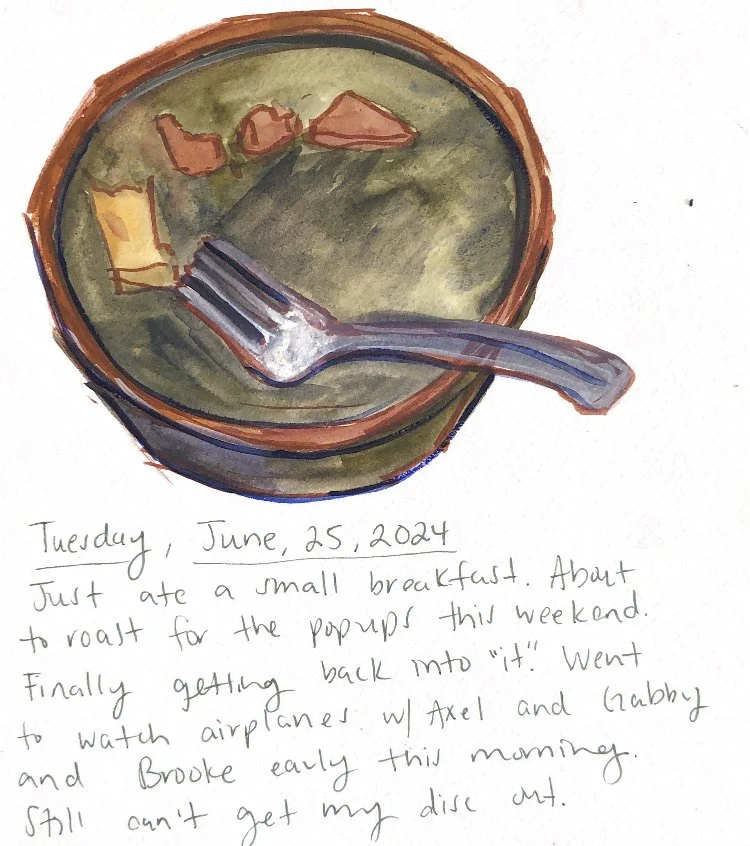 Tuesday, June, 25, 2024
Just ate a small breakfast. About
to roast for the popups this weekend.
Finally getting back into "it". Went
to watch airplanes w/ Axel and Gabby
and Brooke early this morning.
Still can't get my disc out.